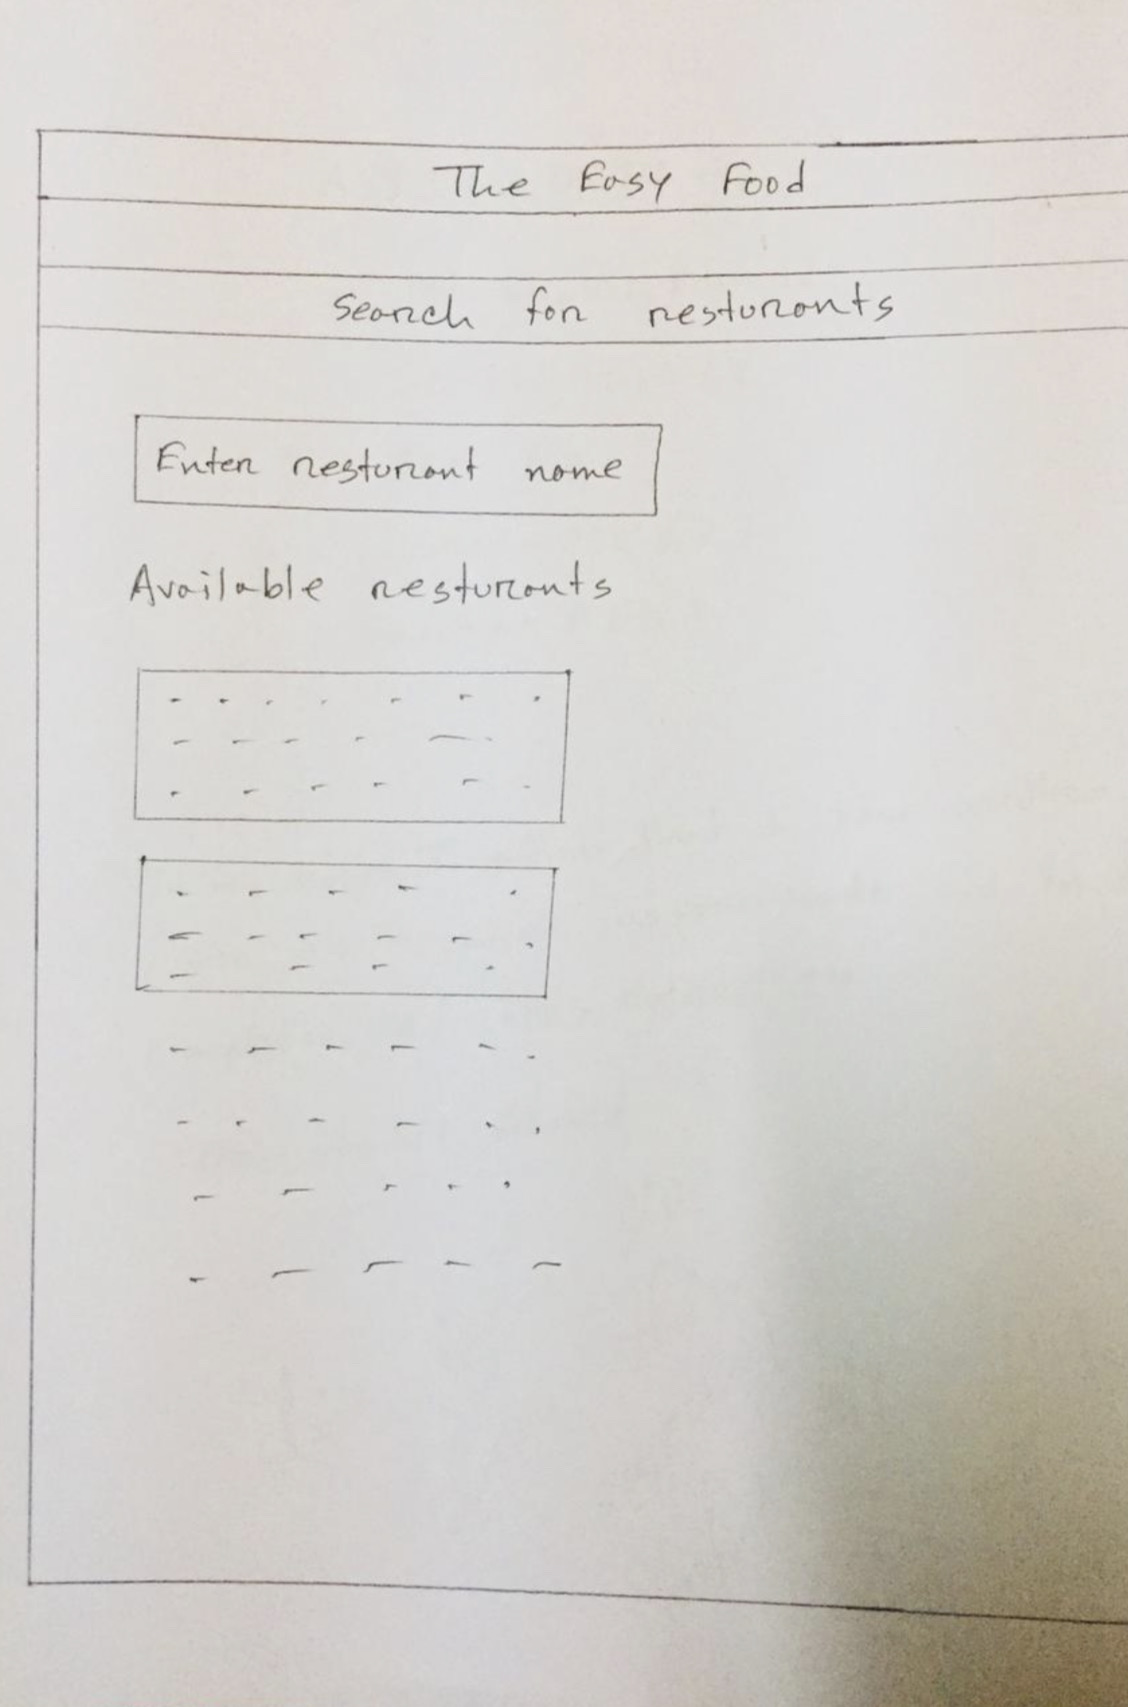 The Easy Food
Search for resturants
Enter resturant name
Available resturants